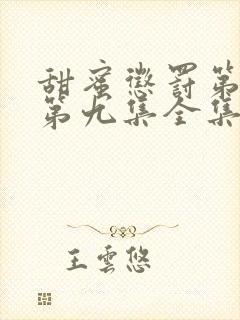 甜蜜懲罰第
第九集全集
王雲悠